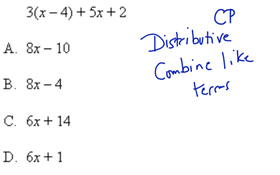 3(x – 4) + 5x + 2
CP
Distributive
Combine like
terms
A. 8x – 10
B. 8x – 4
C. 6x + 14
D. 6x + 1